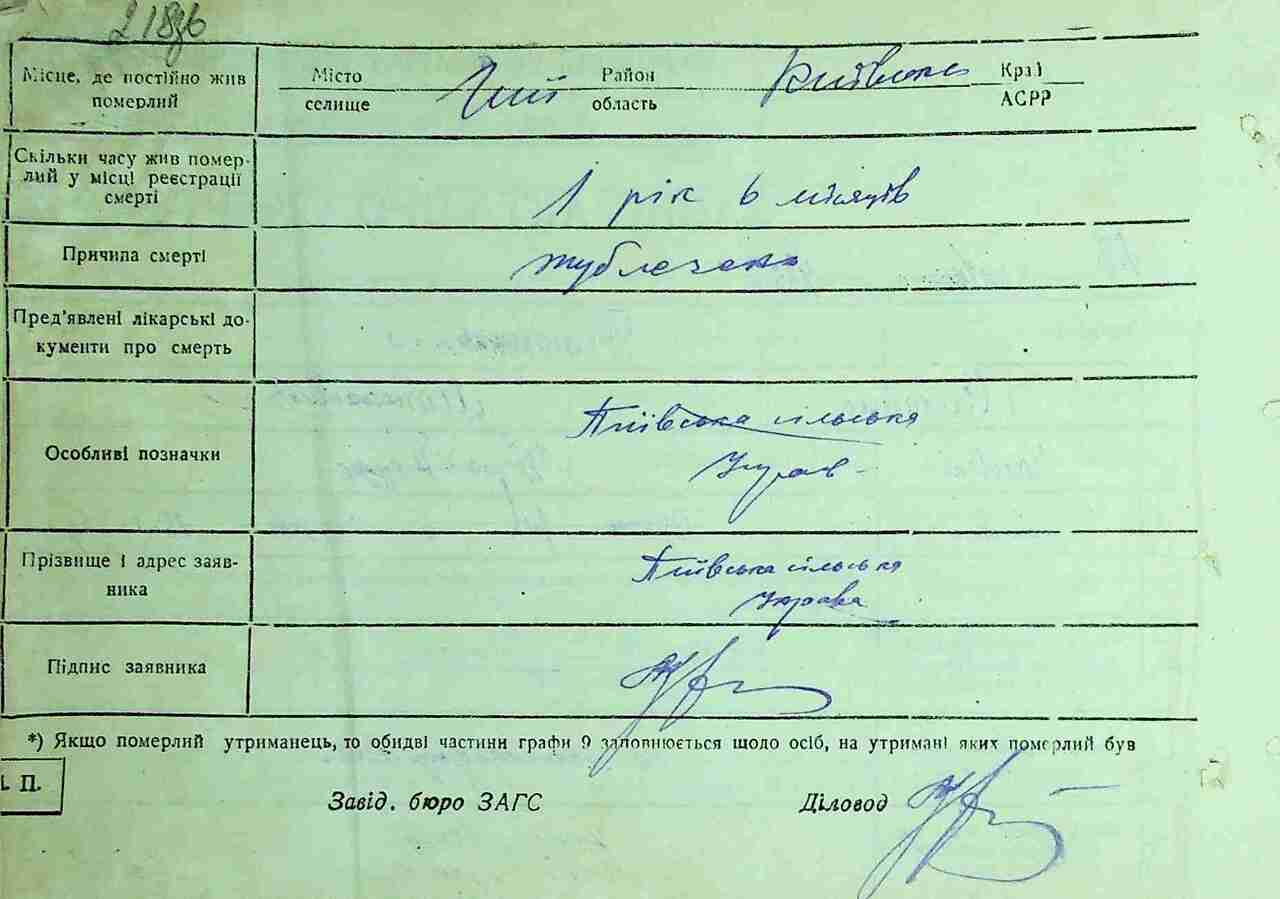 218зв
Місце, де постійно жив
померлий
Місто
селище
Район
область
Київська
Край
АСРР
Скільки часу жив помер-
лий у місці реєстрації
смерті
1 рік 6 місяців
Причина смерті
Пред'явлені лікарські до-
кументи про смерть
Особливі позначки
Пиївська сільська
Управ-
Прізвище і адрес заяв-
ника
Пиївська сільська
Управа
Підпис заявника
*) Якщо померлий утриманець, то обидві частини графи 9 заповнюється щодо осіб, на утримані яких померлий був
. П.
Завід. бюро ЗАГС
Діловод